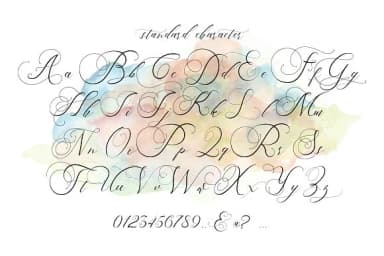 standard character
Aa Bb Cc Dd Ee Ff Gg
Hh Ii Jj Kk Ll Mm
Nn Oo Pp Qq Rr Ss
Tt Uu Vv Ww Xx Yy Zz
0123456789.,:& *? ...